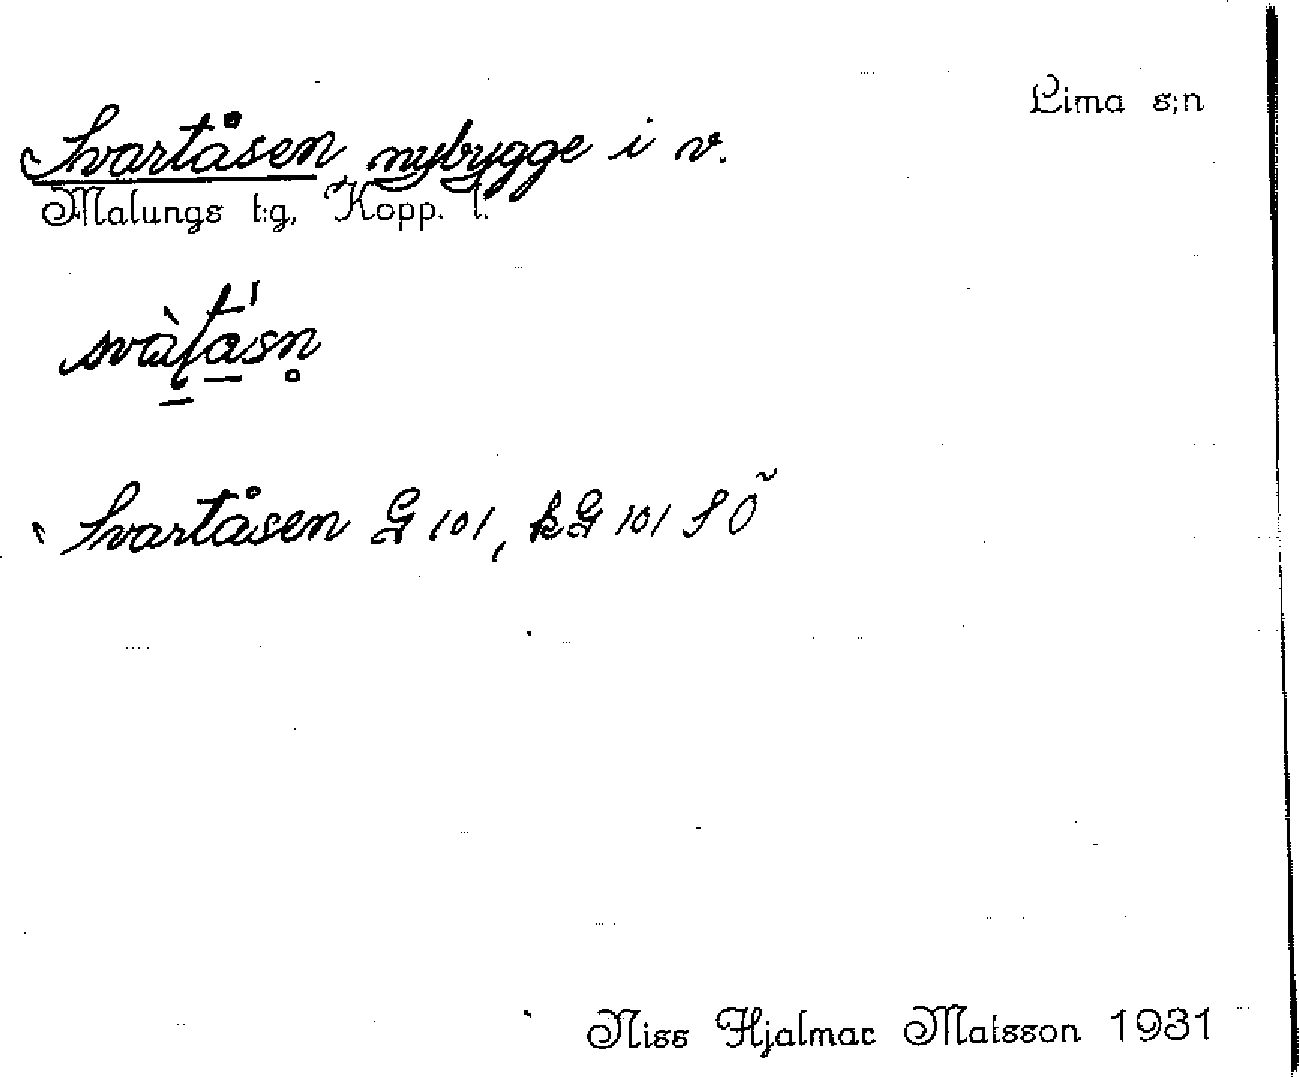 Lima s:n
Svartåsen nybygge i v.
Malungs t:g, Kopp. l.
Svartåsen G 101, kG 101 SÖ
Niss Hjalmar Matsson 1931